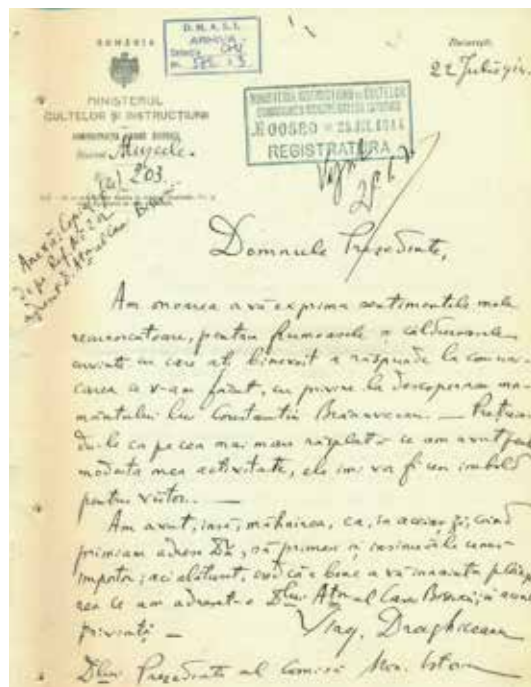 D.M.A.S.I.
ARHIVA
ROMÂNIA
București,
22 Iulie 914
MINISTERUL
CULTELOR ȘI INSTRUCȚIUNII
ADMINISTRAȚIA CASEI BISERICII
Muzeele
203
MINISTERUL INSTRUCȚIUNII ȘI CULTELOR
№ 00580 * 25 IUL 1914
REGISTRATURA
Domnule Președinte,
Am onoarea a vă exprima sentimentele mele
recunoscătoare, pentru frumoasele și călduroasele
cuvinte cu care ați binevoit a răspunde la comuni-
carea ce v-am făcut, cu privire la descoperirea mor-
mântului lui Constantin Brâncoveanu. — Prețuin-
du-le ca pe cea mai mare răsplată ce am avut pentru
modesta mea activitate, ele îmi vor fi un imbold
pentru viitor. —
Am avut, însă, mâhnirea, ca, în aceiași zi, când
primiam adresa Dv., să primesc și insinuările unui
impostor; aci alăturat, cred că e bine a vă înainta plânge-
rea ce am adresat-o Dlui Atorul Casei Bisericii, în această
privință —
Virg. Draghiceanu
Dlui Președinte al Comisiei Mon. Istorice